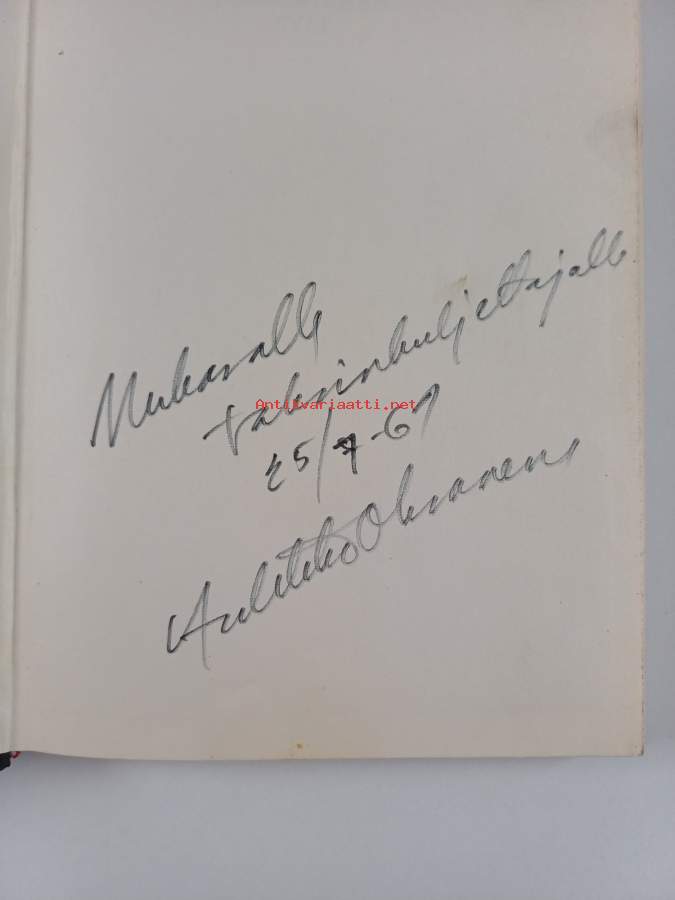 Mukavalle
taksinkuljettajalle
Antikvariaatti.net
25/7-67
Aulikki Oksanen